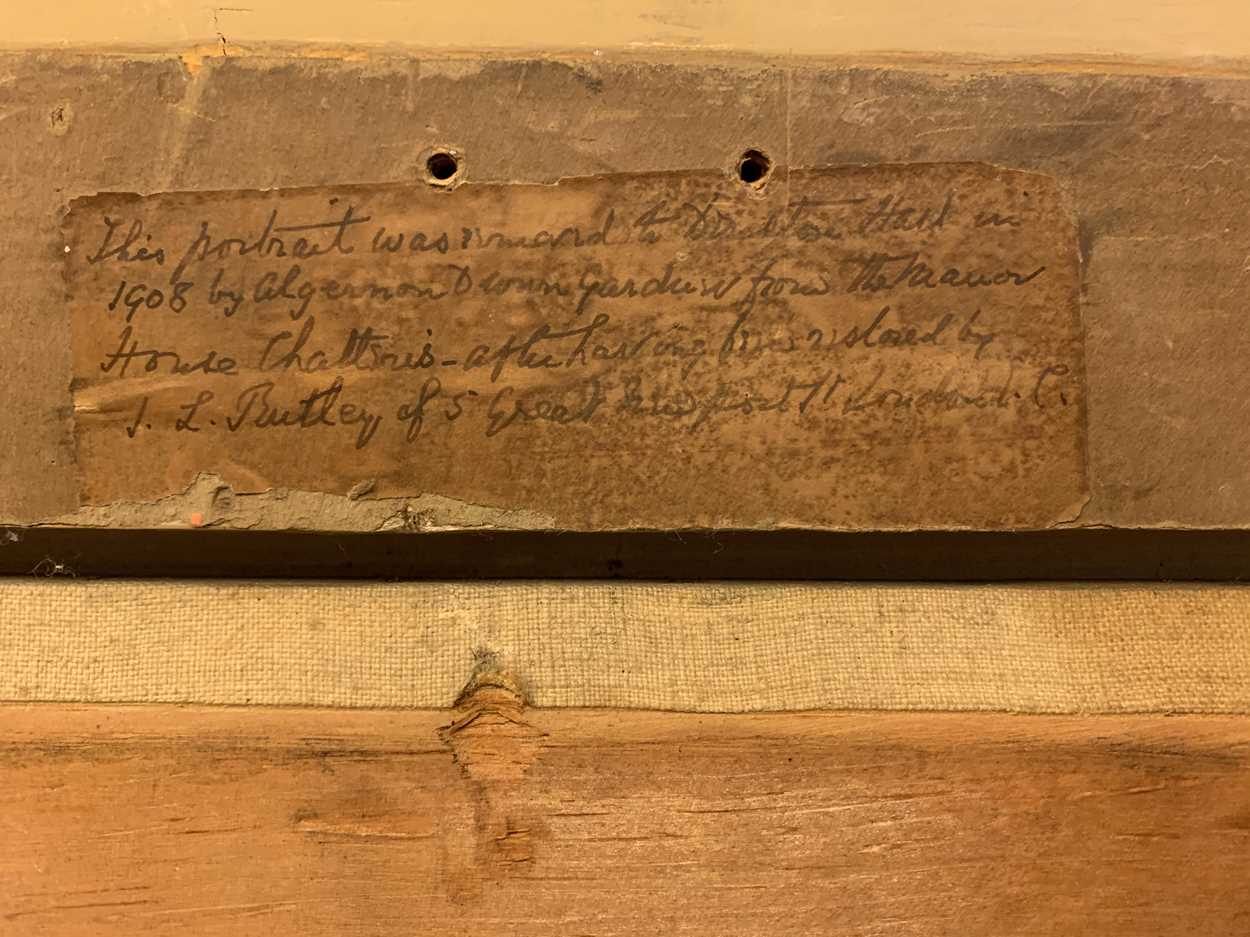 This portrait was removed to Denston Hall in
1908 by Algernon Dunn Gardner from the Manor
House Chatteris - after having been restored by
J. L. Rutley of 5 Great Newport St London W. C.